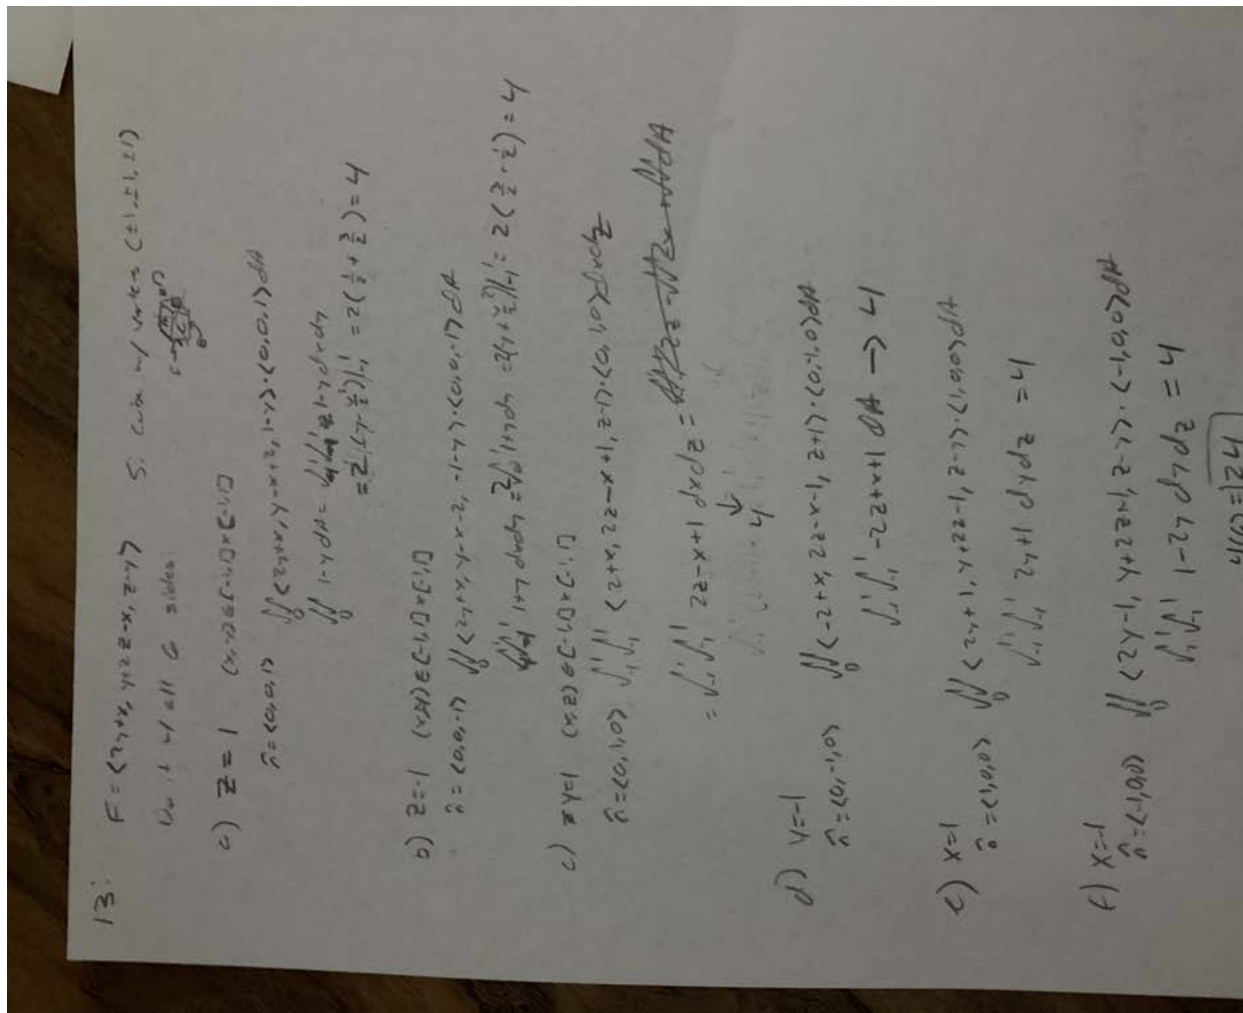 13:
F = <2y+x, y+2z-x, z-y> S: cube w/ vertex (±1,±1,±1)
Do it w/ all 6 sides
a) z=1 (x,y)∈[-1,1]×[-1,1]
n̂=<0,0,1> ∬ <2y+x, y-x+2, 1-y>·<0,0,1>dA
∬ 1-y dA = ∫∫ 1-y dxdy
= 2(y-y²/2)|₋₁¹ = 2(1/2+3/2)=4
b) z=-1 (x,y)∈[-1,1]×[-1,1]
n̂=<0,0,-1> ∬ <2y+x, y-x-2, -1-y>·<0,0,-1>dA
∫∫ 1+y dxdy = 2∫₋₁¹ 1+y dy = 2(y+y²/2)|₋₁¹ = 2(3/2+1/2)=4
c) y=1 (x,z)∈[-1,1]×[-1,1]
n̂=<0,1,0> ∫₋₁¹∫₋₁¹ <2+x, 2z-x+1, z-1>·<0,1,0>dxdz
= ∫₋₁¹∫₋₁¹ 2z-x+1 dxdz =
↓
4
d) y=-1
n̂=<0,-1,0> ∬ <-2+x, 2z-x-1, z+1>·<0,-1,0>dA
∫₋₁¹∫₋₁¹ -2z+x+1 dA → 4
e) x=1
n̂=<1,0,0> ∬ <2y+1, y+2z-1, z-y>·<1,0,0>dA
∫₋₁¹∫₋₁¹ 2y+1 dydz = 4
f) x=-1
n̂=<-1,0,0> ∬ <2y-1, y+2z+1, z-y>·<-1,0,0>dA
∫₋₁¹∫₋₁¹ 1-2y dydz = 4
4(6)=24